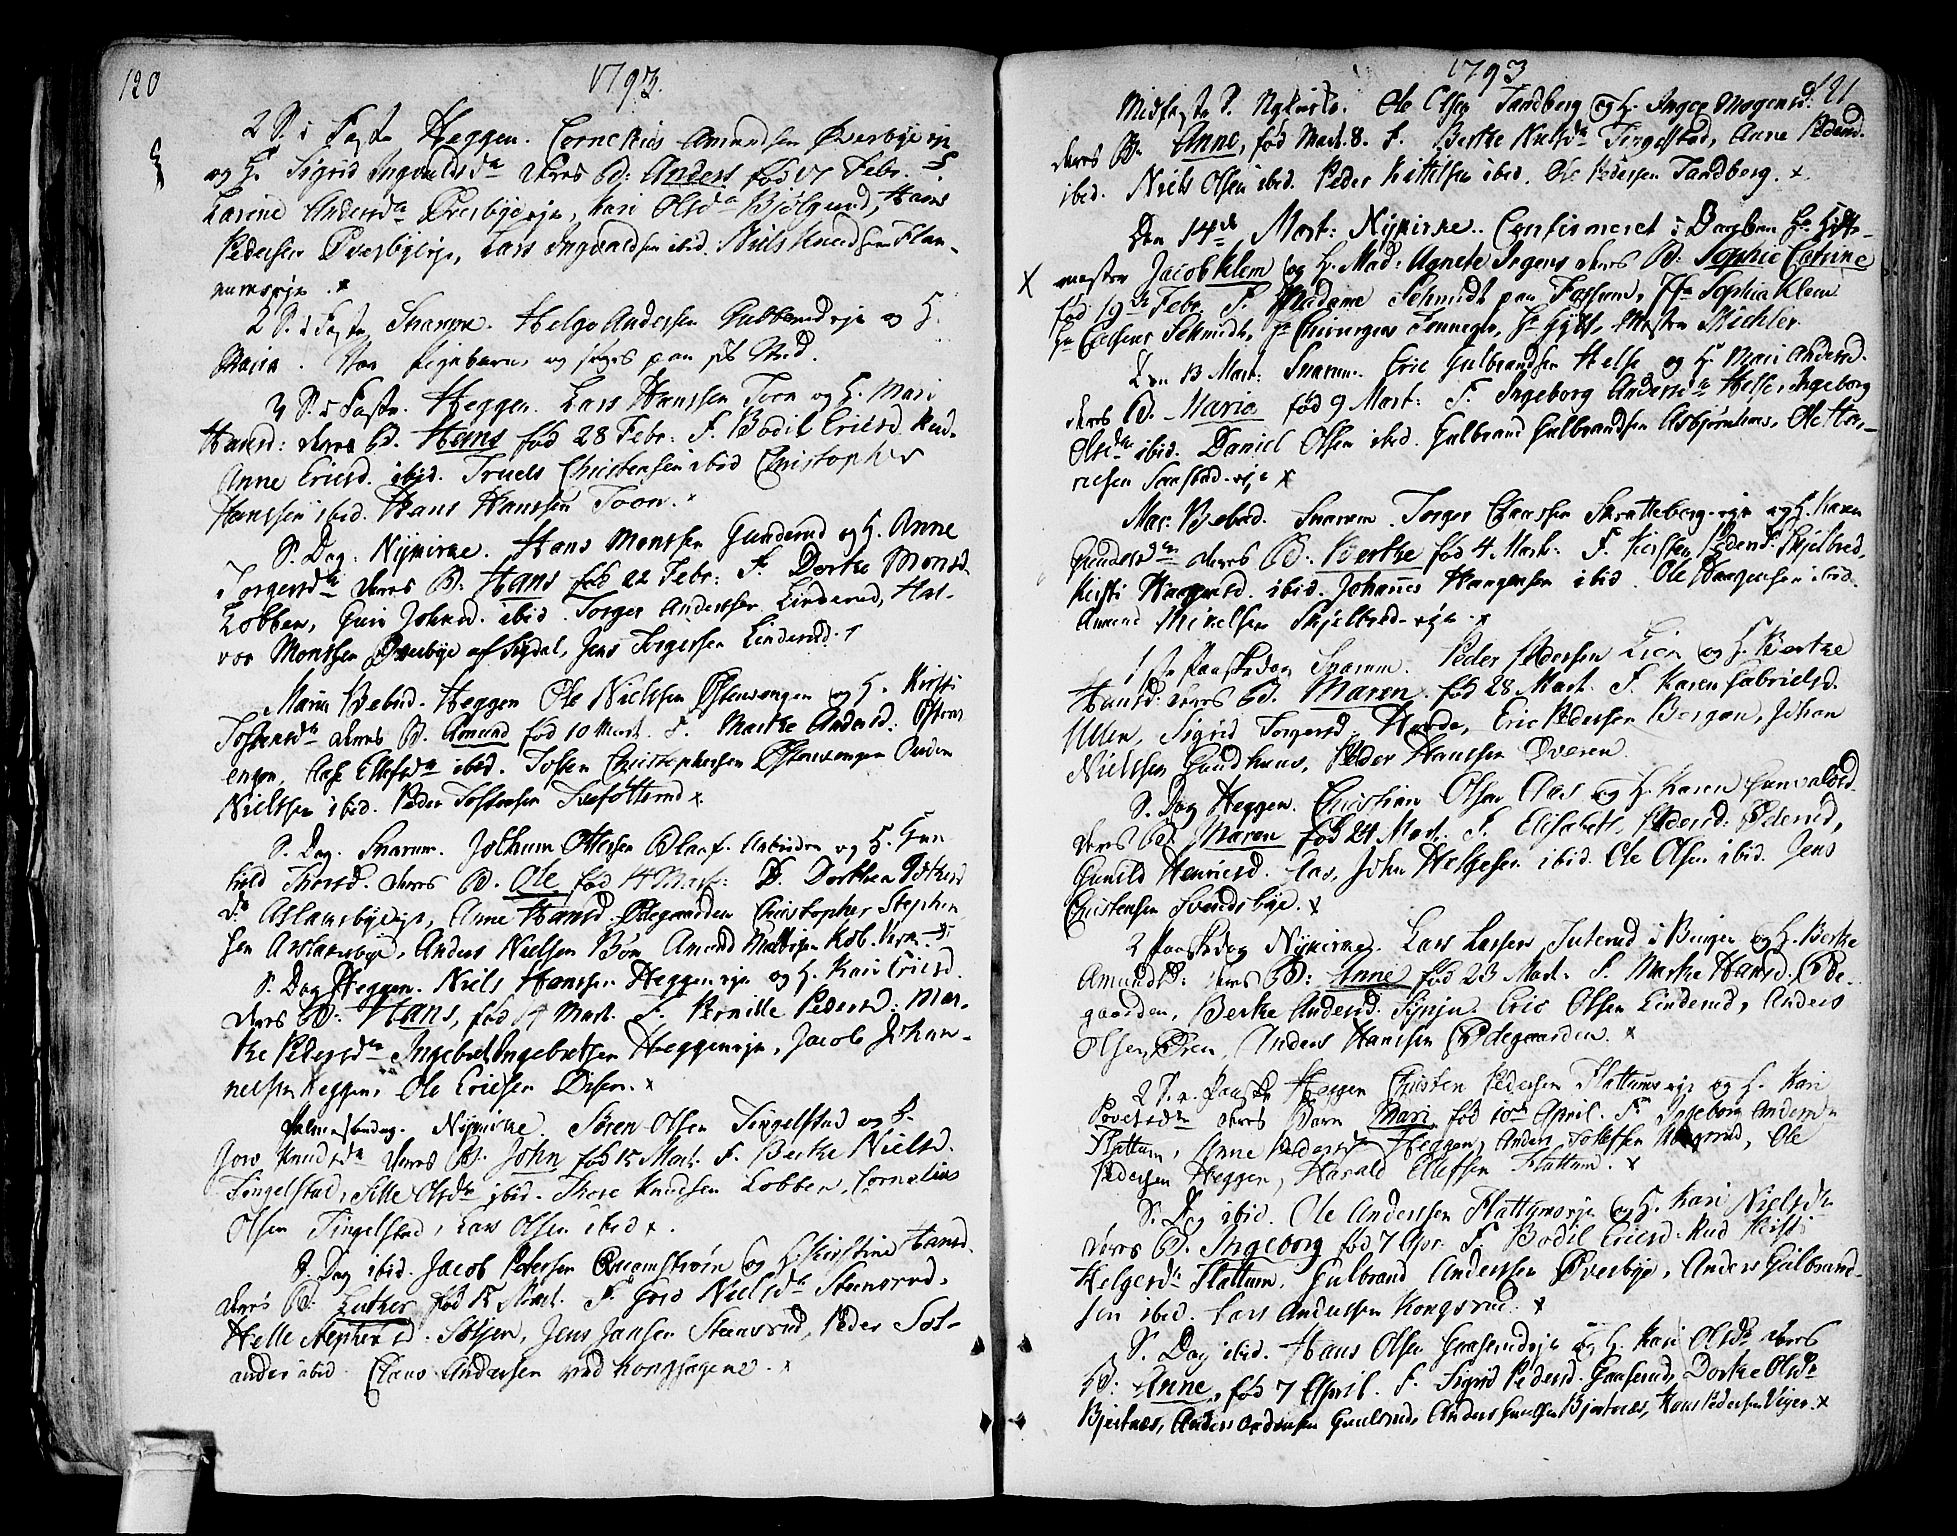 120
1793.
2 S. i Faste Heggen. Cornelius Amundsen Øverbye eje
og H. Sigrid Ingvaldsda deres B: Anders fød 17 Febr. F.
Larine Andersda Øverbye eje, Kari Olsda Bjølgerud, Hans
Pedersen Øverbyeeje, Lars Ingvaldsen ibid. Niels Knudsen Flan-
numseje. x
2 S. i Faste Snarum. Helge Andersen Gubberudeje og H.
Maria.
3 S. i Faste. Heggen. Lars Hanssen Toen og H. Mari
Hansd: deres B. Hans fød 28 Febr: F. Bodil Ericsd Rud.
Anne Ericsd. ibid. Truels Christensen ibid Christopher
Hanssen ibid. Hans Hanssen Toen.
S. Dag. Nykirke. Hans Monssen Gunderud og H. Anne
Torgersda deres B: Hans fød 22 Febr: F. Dorthe Monsd.
Lobben, Guri Johnsd. ibid. Torger Anderssen Linderud, Hal-
vor Monssen Øverbye af Sigdal, Jens Torgersen Linderud.
Mariæ Bebud. Heggen Ole Nielssen Østenvengen og H. Kirsti
Tostensda deres B. Amund fød 10 Mart. F. Marthe Andersd: Østens
engen, Aase Ellefsda ibid. Tosten Christophersen Østenvengen Anders
Nielssen ibid. Peder Tostensen x.
S. Dag. Snarum. Jothum Ottersen Blaaf. Arbeider og H. Gun
hild Thorsd. deres B. Ole fød 14 Mart: F. Dorthea
da Aslaxbyeeje, Anne Hansd. Ødegaarden Christopher Stephen
sen Aslaxbye, Anders Nielsen Bøn Amund
S. Dag Heggen. Niels Hanssen Heggenseje og H. Kari Ericsd.
deres B: Hans, fød 17 Mart. F. Pernille Pedersd: Mar-
the Pedersda Ingebret Ingebretsen Heggenseje, Jacob Johan-
nessen Heggen, Ole Ericsen Disen. x
Palmesøndag. Nykirke. Søren Olsen Tingelstad og H.
Goro Knudsda deres B. John fød 15 Mart. F. Berthe Nielsd.
Tingelstad, Sille Olsda ibid. Thore Knudsen Lobben, Cornelius
Olsen Tingelstad, Lars Olsen ibid x.
S. Dag ibid. Jacob Petersen Qvamstrøm og H. Kirstine Hansd.
deres B: Luther fød 15 Mart. F. Goro Nielsda Steensrud,
Helle Stephensd. Jens Jansen Steensrud, Peder
ander ibid. Claus Andersen ved Kongssagene. x
1793
121
Midfaste S. Nykirke. Ole Olsen Tandberg og H. Inger Mogensd:
deres B. Anne, fød Mart. 8. F. Berthe Nielsda Tingelstad, Anne Pedersd.
ibid. Niels Olsen ibid. Peder Kittilsen ibid. Ole Pedersen Tandberg. x.
Den 14de Mart: Nykirke. Confirmeret i Daaben Hr Hytte-
X mester Jacob Klem og H. Mad: Agnete Irgens deres B: Sophie Catrine
fød 19de Febr. F. Madame Schmidt paa Fossum, Sophia Klem
Hr Schmidt, Hr Chirurgus
Den 13 Mart: Snarum. Eric Gulbrandsen Helse og H. Mari Andersd.
deres B. Maria fød 9 Mart: F. Ingeborg Andersda Helse, Ingeborg
Olsda ibid. Daniel Olsen ibid. Gulbrand Gulbrandsen Asbjørnhuus, Ole Hen-
ricsen Saastad-eje x
Mar: Bebud. Snarum. Torger Claussen Skratteberg-eje og H. Karen
Gundersda deres B: Berthe fød 4 Mart: F. Kirsten Pedersd: Skjelbred,
Kirsti Haagensd. ibid. Johannes Haagensen ibid. Ole Haagensen ibid.
Amund Mikelsen Skjelbred-eje. x
1ste Paaskedag Snarum. Peder Pedersen Lien og H. Berthe
Hansd. deres B. Maren fød 28 Mart. F. Karen Gabrielsd.
Ulen, Sigrid Torgersd. Horde, Eric Pedersen Bergan, Johan
Nielssen Gundhuus, Peder Hanssen Overen.
S. Dag Heggen. Christian Olsen Aas og H. Karen Gunvaldsd.
deres B. Maren fød 24 Mart. F. Elisabeth Pedersd: Pederud,
Gunild Henricsd. Aas, John Helgesen ibid. Ole Olsen ibid. Jens
Christensen Svendsbye. x
2 Paaskedag Nykirke. Lars Larsen Juterud i Bingen og H. Berthe
Amundsd: deres B: Anne fød 23 Mart. F. Marthe Hansd. Øde-
gaarden, Berthe Andersd. Eric Olsen Linderud, Anders
Olsen Øren, Anders Hanssen Ødegaarden. x
2 S. e. Paaske Heggen Christen Pedersen Flattumseje og H. Kari
Povelsda deres Barn Mari fød 10de April. F. Ingeborg Andersda
Flattum, Anne Pedersd Heggen, Anders Tollefsen, Ole
Pedersen Heggen, Harald Ellefsen Flattum. x
S. Dag ibid. Ole Anderssen Flattumseje og H. Kari Nielsda
deres B. Ingeborg fød 7 Apr. F. Bodil Ericsd. Rud Kirsti
Helgersda Flattum, Gulbrand Anderssen Øverbye, Anders Gulbrand-
sen ibid. Lars Andersen Kongsrud. x
S. Dag ibid. Hans Olsen Gaaserudeje og H. Kari Olsda deres
B: Anne, fød 7 April. F. Sigrid Pedersd. Gaaserud, Dorthe Olsda
Bjertnæs, Anders Andersen, Anders Bjertnæs, Hans Pedersen x